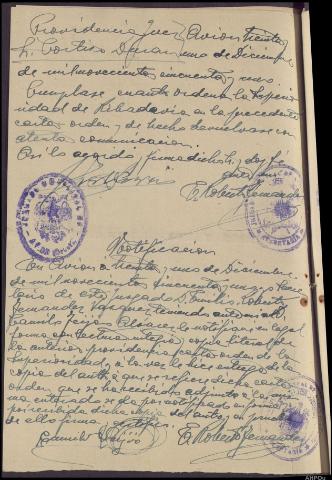 Providencia Juez Avion treinta
Sr. Cortizo Duran y uno de Diciembre
de mil novecientos cincuenta y uno.
Cumplase cuanto ordena la Superio
ridad de Ribadavia en la precedente
carta-orden, y de hecho devuelvase con
atenta comunicacion.
Asi lo acordó y firma dicho Sr. doy fé
E. Roberto Fernandez
Notificacion
En Avion a treinta y uno de Diciembre
de mil novecientos cincuenta y uno, yo Secre
tario de este juzgado D. Emilio Roberto
Fernandez Vazquez, teniendo ante mi a D.
Camilo Feijoo Alvarez le notifiqué en legal
forma con lectura integra y copia literal de
la anterior providencia y carta orden de la
Superioridad, a la vez le hice entrega de la
copia del auto a que se refiere dicha carta
orden que se ha recibido adjunto a la misma
entrado se da por notificado en forma
por recibida dicha copia del auto, en prueba
de ello firma, certifico.
Camilo Feijóo E. Roberto Fernandez
SECRETARIA
AHPOu